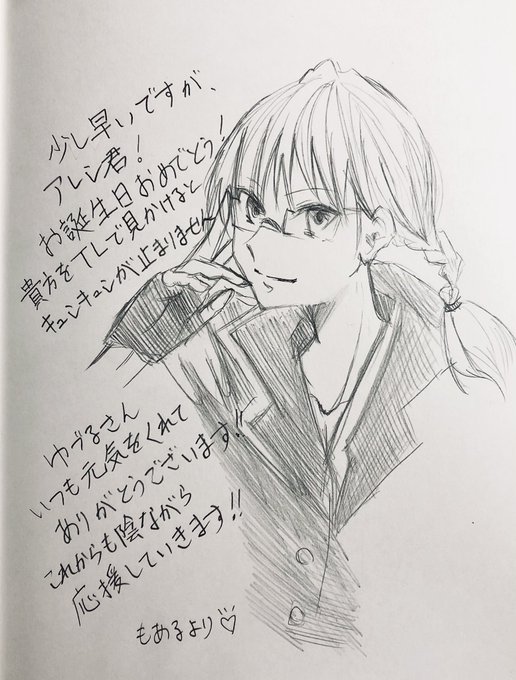 少し早いですが、
アレン君！
お誕生日おめでとう！
貴方をTLで見かけると
キュンキュンが止まりません
ゆづるさん
いつも元気をくれて
ありがとうございます!!
これからも陰ながら
応援していきます!!
もあるより♡